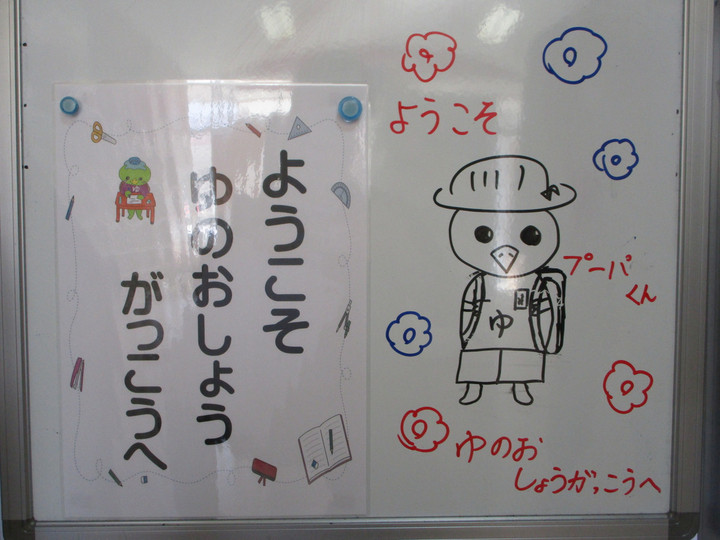 ようこそ
ゆのおしょう
がっこうへ
ようこそ
プーパ
くん
ゆ
ゆのお
しょうがっこうへ